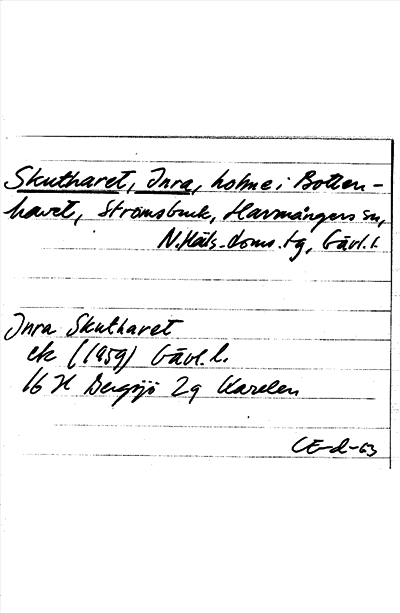 Skutharet, Inra, holme i Botten-
havet, Strömsbruk, Harmångers sn,
N.Häls. doms. tg, Gävl. l.
Inra Skutharet
ek (1959) Gävl. l.
16 H Bergsjö 2g Karelen
CE-d-63